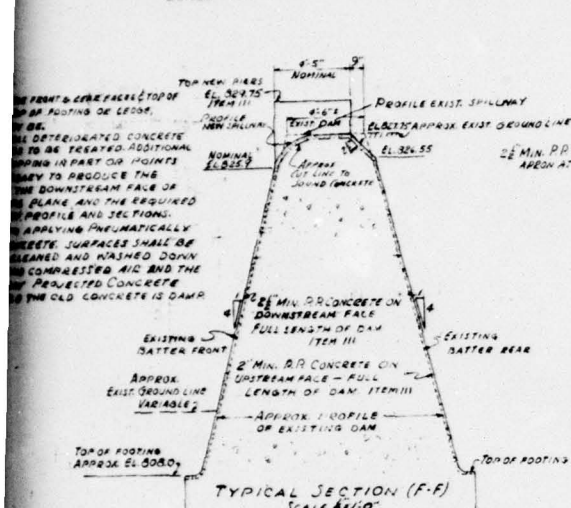 4'-5" 9"
NOMINAL
TOP NEW PIERS
EL. 829.75
ITEM III
PROFILE
NEW SPILLWAY
NOMINAL
EL. 825.9
4'-6"±
EXIST DAM
PROFILE EXIST. SPILLWAY
APPROX. EXIST. GROUND LINE
EL. 826.55
APPROX
CUT LINE TO
SOUND CONCRETE
FRONT & REAR FACES & TOP OF
OF FOOTING OR LEDGE,
BE.
DETERIORATED CONCRETE
TO BE TREATED. ADDITIONAL
IN PART OR POINTS
TO PRODUCE THE
DOWNSTREAM FACE OF
PLANE AND THE REQUIRED
PROFILE AND SECTIONS.
APPLYING PNEUMATICALLY
SURFACES SHALL BE
AND WASHED DOWN
COMPRESSED AIR AND THE
PROJECTED CONCRETE
THE OLD CONCRETE IS DAMP.
2½" MIN. P.P.
APRON
4 4
2½" MIN. P.P. CONCRETE ON
DOWNSTREAM FACE
FULL LENGTH OF DAM
ITEM III
EXISTING
BATTER FRONT
EXISTING
BATTER REAR
2" MIN. P.P. CONCRETE ON
UPSTREAM FACE - FULL
LENGTH OF DAM. ITEM III
APPROX.
EXIST. GROUND LINE
VARIABLE
APPROX. PROFILE
OF EXISTING DAM
TOP OF FOOTING
APPROX. EL. 808.0
TOP OF FOOTING
TYPICAL SECTION (F-F)
SCALE